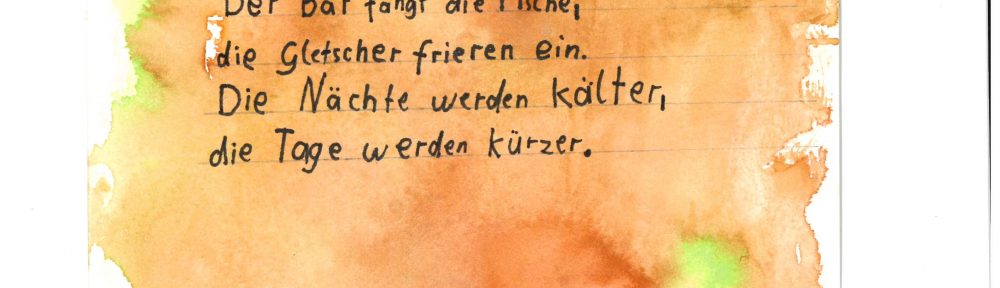 Der Bär fängt die Fische,
die Gletscher frieren ein.
Die Nächte werden kälter,
die Tage werden kürzer.